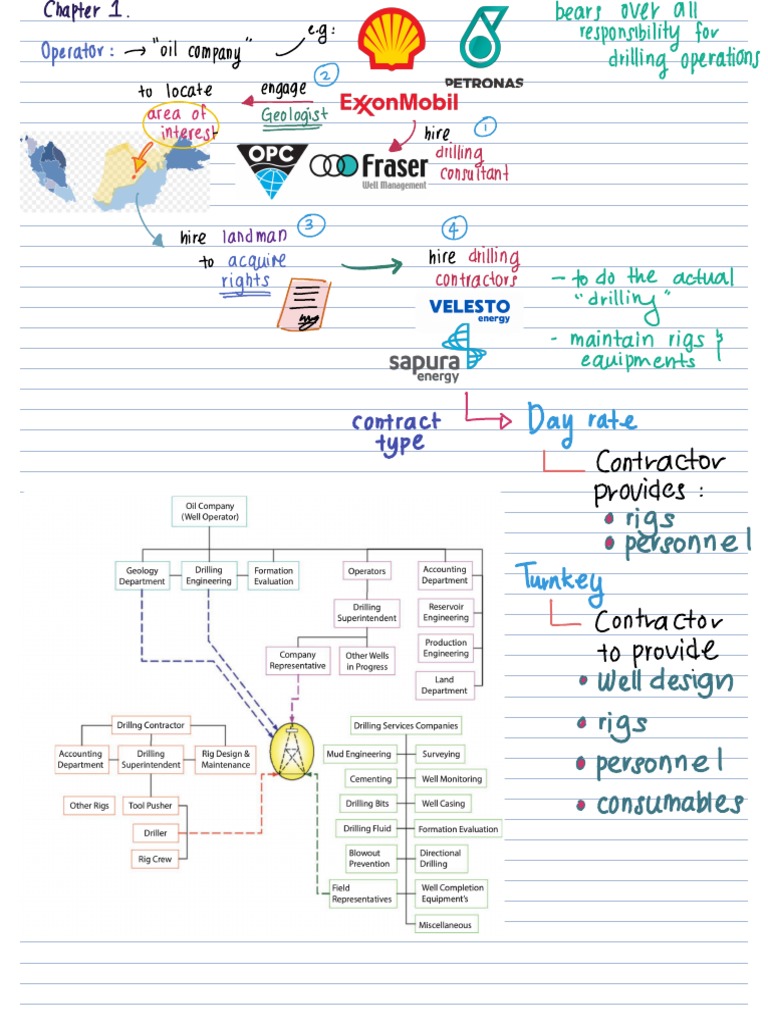 Chapter 1.
Operator: → "oil company"
e.g:
PETRONAS
ExxonMobil
bears over all
responsibility for
drilling operations
① hire
drilling
consultant
OPC
Fraser
Well Management
② engage
Geologist
to locate
area of
interest
③ hire landman
to acquire
rights
④
hire drilling
contractors
VELESTO
energy
sapura
energy
- to do the actual
"drilling"
- maintain rigs &
equipments
contract
type
Day rate
Contractor
provides:
• rigs
• personnel
Turnkey
Contractor
to provide
• Well design
• rigs
• personnel
• consumables
Oil Company
(Well Operator)
Geology
Department
Drilling
Engineering
Formation
Evaluation
Operators
Accounting
Department
Drilling
Superintendent
Reservoir
Engineering
Company
Representative
Other Wells
in Progress
Production
Engineering
Land
Department
Drillng Contractor
Accounting
Department
Drilling
Superintendent
Rig Design &
Maintenance
Other Rigs
Tool Pusher
Driller
Rig Crew
Drilling Services Companies
Mud Engineering
Surveying
Cementing
Well Monitoring
Drilling Bits
Well Casing
Drilling Fluid
Formation Evaluation
Blowout
Prevention
Directional
Drilling
Field
Representatives
Well Completion
Equipment's
Miscellaneous